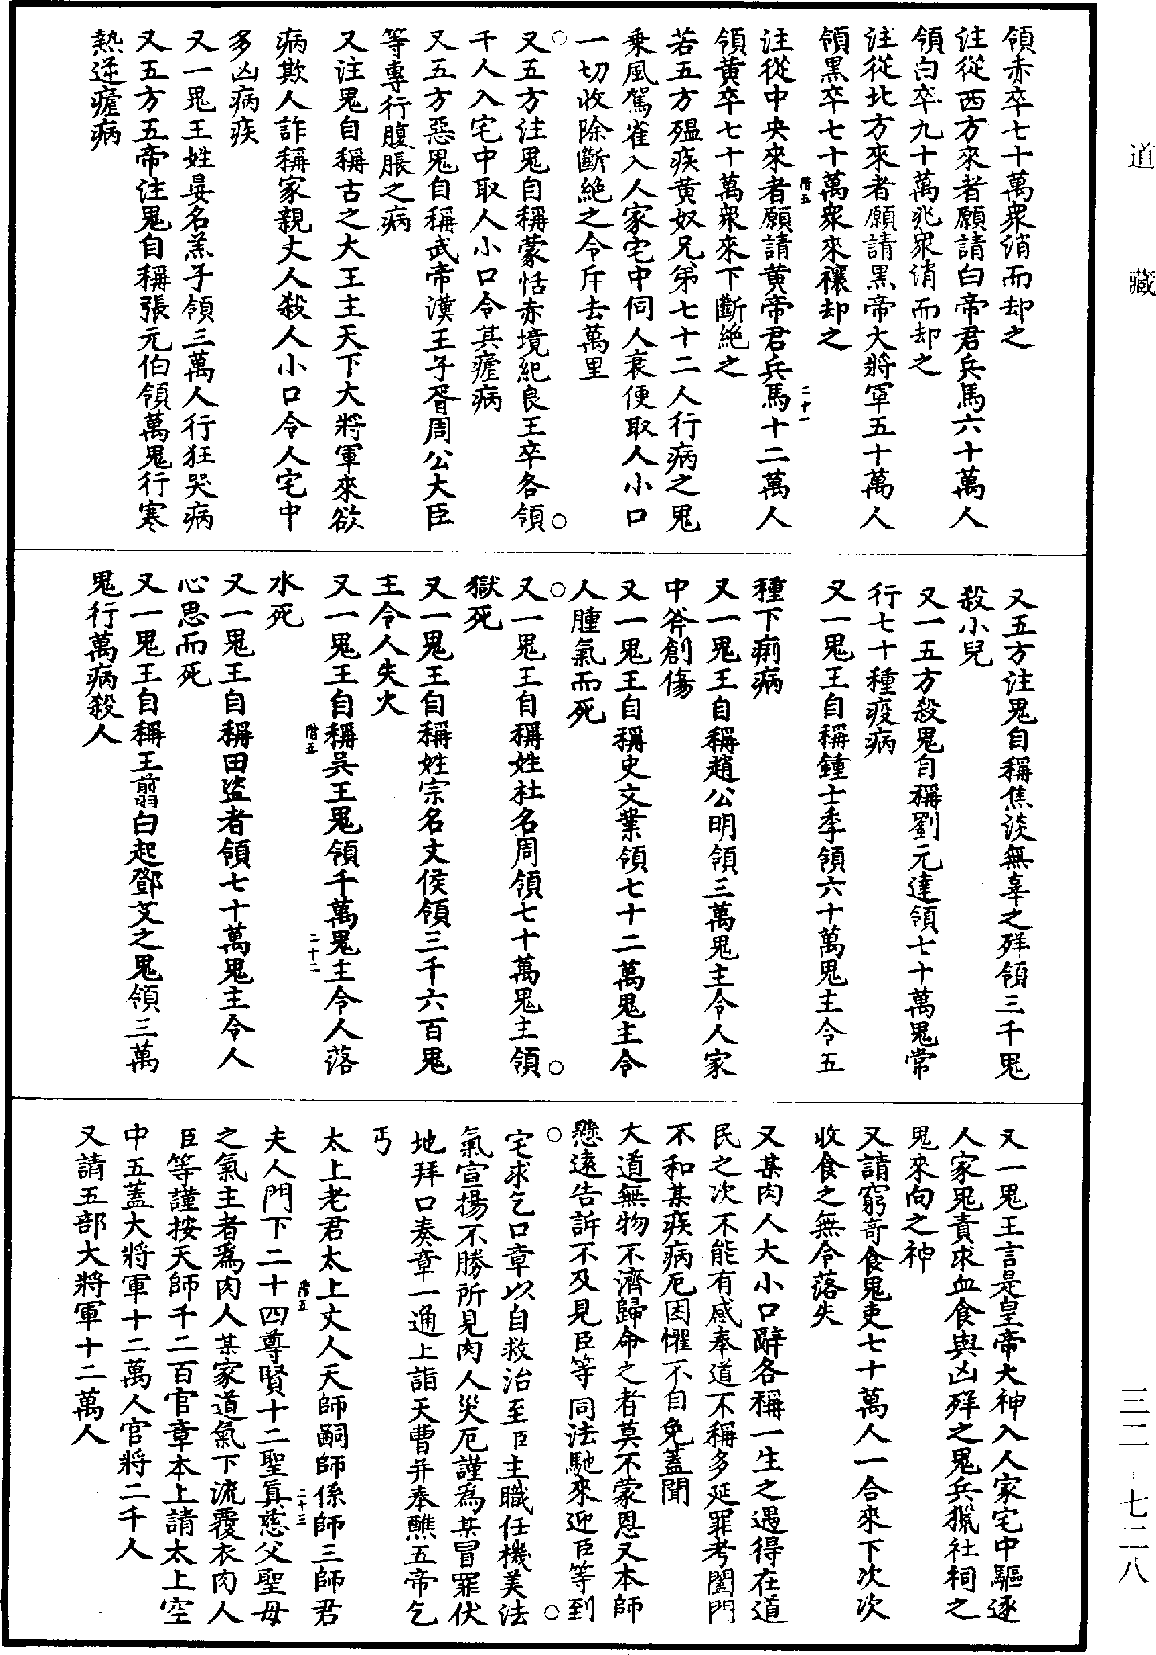 道藏
三二—七二八
領赤卒七十萬衆消而却之
注從西方來者願請白帝君兵馬六十萬人
領白卒九十萬兆衆消而却之
注從北方來者願請黑帝大將軍五十萬人
領黑卒七十萬衆來禳却之
階五 二十一
注從中央來者願請黄帝君兵馬十二萬人
領黄卒七十萬衆來下斷絶之
若五方瘟疾黄奴兄弟七十二人行病之鬼
乗風駕雀入人家宅中伺人衰便取人小口
一切收除斷絶之令斥去萬里
又五方注鬼自稱蒙恬赤境紀良王卒各領
千人入宅中取人小口令其瘧病
又五方惡鬼自稱武帝漢王子胥周公大臣
等專行腹脹之病
又注鬼自稱古之大王主天下大將軍來欲
病欺人詐稱家親丈人殺人小口令人宅中
多凶病疾
又一鬼王姓晏名羔子領三萬人行狂哭病
又五方五帝注鬼自稱張元伯領萬鬼行寒
熱逆瘧病
又五方注鬼自稱焦談無辜之殃領三千鬼
殺小兒
又一五方殺鬼自稱劉元達領七十萬鬼常
行七十種疫病
又一鬼王自稱鍾士季領六十萬鬼主令五
種下痢病
又一鬼王自稱趙公明領三萬鬼主令人家
中斧創傷
又一鬼王自稱史文業領七十二萬鬼主令
人腫氣而死
又一鬼王自稱姓社名周領七十萬鬼主領
獄死
又一鬼王自稱姓宗名丈侯領三千六百鬼
主令人失火
又一鬼王自稱吳王鬼領千萬鬼主令人落
階五 二十二
水死
又一鬼王自稱田盜者領七十萬鬼主令人
心思而死
又一鬼王自稱王翦白起鄧艾之鬼領三萬
鬼行萬病殺人
又一鬼王言是皇帝大神入人家宅中驅逐
人家鬼責求血食與凶殃之鬼兵獵社祠之
鬼來向之神
又請窮奇食鬼吏七十萬人一合來下次次
收食之無令落失
又某肉人大小口辭各稱一生之遇得在道
民之次不能有感奉道不稱多延罪考闔門
不和某疾病厄困懼不自免蓋聞
大道無物不濟歸命之者莫不蒙恩又本師
懸遠告訴不及見臣等同法馳來迎臣等到
宅求乞口章以自救治至臣主職任機美法
氣宣揚不勝所見肉人災厄謹爲某冒罪伏
地拜口奏章一通上詣天曹并奉醮五帝乞
丐
太上老君太上丈人天師嗣師係師三師君
階五 二十三
夫人門下二十四尊賢十二聖真慈父聖母
之氣主者爲肉人某家道氣下流覆衣肉人
臣等謹按天師千二百官章本上請太上空
中五蓋大將軍十二萬人官將二千人
又請五部大將軍十二萬人